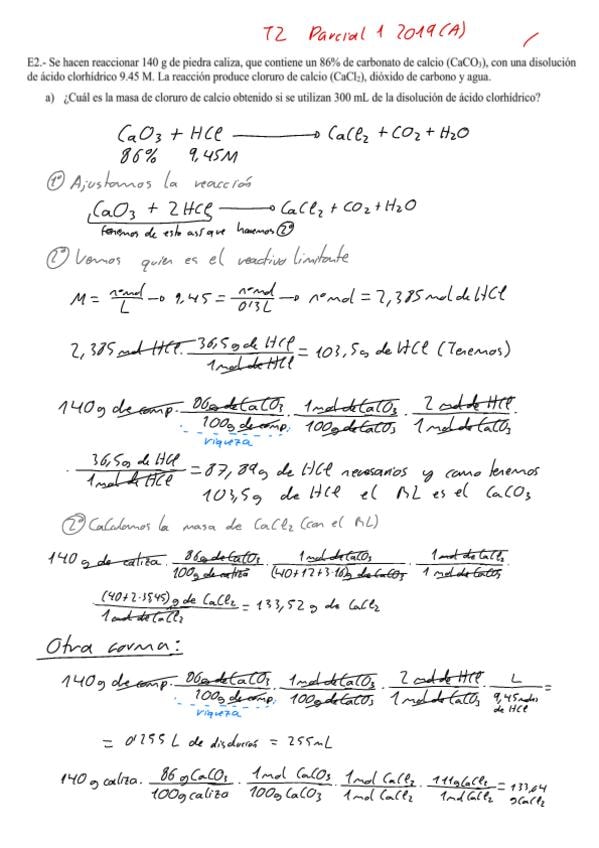 T2 Parcial 1 2019(A)
E2.- Se hacen reaccionar 140 g de piedra caliza, que contiene un 86% de carbonato de calcio (CaCO₃), con una disolución
de ácido clorhídrico 9.45 M. La reacción produce cloruro de calcio (CaCl₂), dióxido de carbono y agua.
a) ¿Cuál es la masa de cloruro de calcio obtenido si se utilizan 300 mL de la disolución de ácido clorhídrico?
CaO₃ + HCl → CaCl₂ + CO₂ + H₂O
86% 9,45M
1º Ajustamos la reacción
CaO₃ + 2HCl → CaCl₂ + CO₂ + H₂O
tenemos de esto así que hacemos 2º
2º Vemos quien es el reactivo limitante
M = nº mol / L → 9,45 = nº mol / 0'3 L → nº mol = 2,385 mol de HCl
2,385 mol HCl · 36,5 g de HCl / 1 mol de HCl = 103,5 g de HCl (Tenemos)
140 g de comp. · 86 g de CaCO₃ / 100 g de comp. · 1 mol de CaCO₃ / 100 g de CaCO₃ · 2 mol de HCl / 1 mol de CaCO₃ ·
riqueza
· 36,5 g de HCl / 1 mol de HCl = 87,89 g de HCl necesarios y como tenemos
103,5 g de HCl el RL es el CaCO₃
2º Calculamos la masa de CaCl₂ (con el RL)
140 g de caliza · 86 g de CaCO₃ / 100 g de caliza · 1 mol de CaCO₃ / (40+12+3·16) g de CaCO₃ · 1 mol de CaCl₂ / 1 mol de CaCO₃
(40+2·35,45) g de CaCl₂ / 1 mol de CaCl₂ = 133,52 g de CaCl₂
Otra forma:
140 g de comp. · 86 g de CaCO₃ / 100 g de comp. · 1 mol de CaCO₃ / 100 g de CaCO₃ · 2 mol de HCl / 1 mol de CaCO₃ · L / 9,45 moles de HCl =
riqueza
= 0'255 L de disolución = 255 mL
140 g caliza · 86 g CaCO₃ / 100 g caliza · 1 mol CaCO₃ / 100 g CaCO₃ · 1 mol CaCl₂ / 1 mol CaCl₂ · 111 g CaCl₂ / 1 mol CaCl₂ = 133,64 g CaCl₂